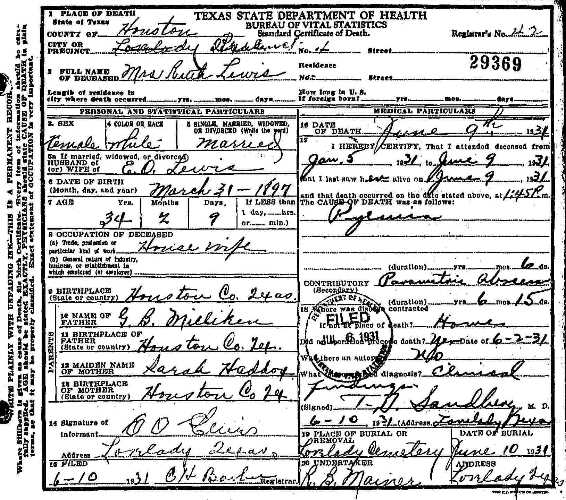 1 PLACE OF DEATH
State of Texas
TEXAS STATE DEPARTMENT OF HEALTH
BUREAU OF VITAL STATISTICS
COUNTY OF Houston
Standard Certificate of Death.
Registrar's No. 42
CITY OR PRECINCT Lovelady
No. Street
29369
2 FULL NAME OF DECEASED Mrs Ruth Lewis
Residence No. Street
Length of residence in city where death occurred yrs. mos. days.
How long in U. S. if foreign born? yrs. mos. days.
PERSONAL AND STATISTICAL PARTICULARS
MEDICAL PARTICULARS
3 SEX
female
4 COLOR OR RACE
white
5 SINGLE, MARRIED, WIDOWED, OR DIVORCED (Write the word)
Married
16 DATE OF DEATH June 9th 1931
5a If married, widowed, or divorced
HUSBAND of
(or) WIFE of E. O. Lewis
17 I HEREBY CERTIFY, That I attended deceased from
Jan. 5 1931 to June 9 1931
that I last saw her alive on June 9 1931
and that death occurred on the date stated above, at 1:45 P m.
The CAUSE OF DEATH was as follows:
Pyemia
6 DATE OF BIRTH
(Month, day, and year) March 31-1897
7 AGE
34 2 9
If LESS than
1 day, hrs.
or min.
8 OCCUPATION OF DECEASED
(a) Trade, profession or particular kind of work House wife
(b) General nature of industry, business, or establishment in which employed (or employer)
(duration) yrs. mo. 6 ds.
CONTRIBUTORY
(Secondary)
(duration) yrs. 6 mo. 15 ds.
9 BIRTHPLACE
(State or country) Houston Co. Texas.
18 Where was disease contracted
if not at place of death? Home
PARENTS
10 NAME OF FATHER G. B. Milliken
Did an operation precede death? Yes 6-2-31
Was there an autopsy? No
11 BIRTHPLACE OF FATHER
(State or country) Houston Co Tex.
diagnosis? Clinical findings
12 MAIDEN NAME OF MOTHER Sarah Haddox
(Signed) M. D.
13 BIRTHPLACE OF MOTHER
(State or country) Houston Co Tex
6-10 1931 (Address) Lovelady Texas
FILED
6 1931
14 Signature of informant
Address Lovelady Texas.
19 PLACE OF BURIAL OR REMOVAL
Lovelady Cemetery
DATE OF BURIAL
June 10 1931
15 FILED
6-10 1931
Registrar
20 UNDERTAKER
ADDRESS
Lovelady Tex